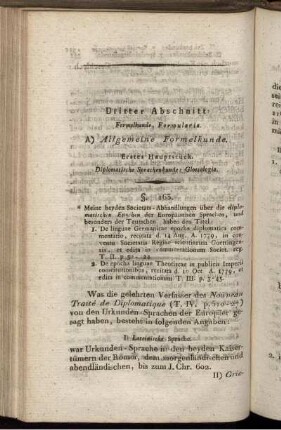 Dritter Abschnitt:
Formelkunde, Formularia.
A) Allgemeine Formelkunde.
Erstes Hauptstück.
Diplomatische Sprachenkunde: Glossologia.
§. 263.
* Meine beyden Societäts-Abhandlungen über die diplo-
matischen Epochen der Europäischen Sprachen, und
besonders der Teutschen haben den Titel:
1. De linguae Germanicae epocha diplomatica com-
mentatio, recitata d. 14 Aug. A. 1779, in con-
ventu Societatis Regiae scientiarum Goettingen-
sis, et edita in commentationum Societ.
T. II. p.
2. De epocha linguae Theotiscae in publicis Imperii
constitutionibus, recitata d. Oct. A. 1779, et
edita in commentationum T. III. p. 3-45.
Was die gelehrten Verfasser des Nouveau
Traité de Diplomatique (T. IV. p.
von den Urkunden-Sprachen der Europäer ge-
sagt haben, besteht in folgenden Angaben:
I) Lateinische Sprache
war Urkunden-Sprache in den beyden Kaiser-
tümern der Römer, dem morgenländischen und
abendländischen, bis zum J. Chr. 600.
II) Grie-